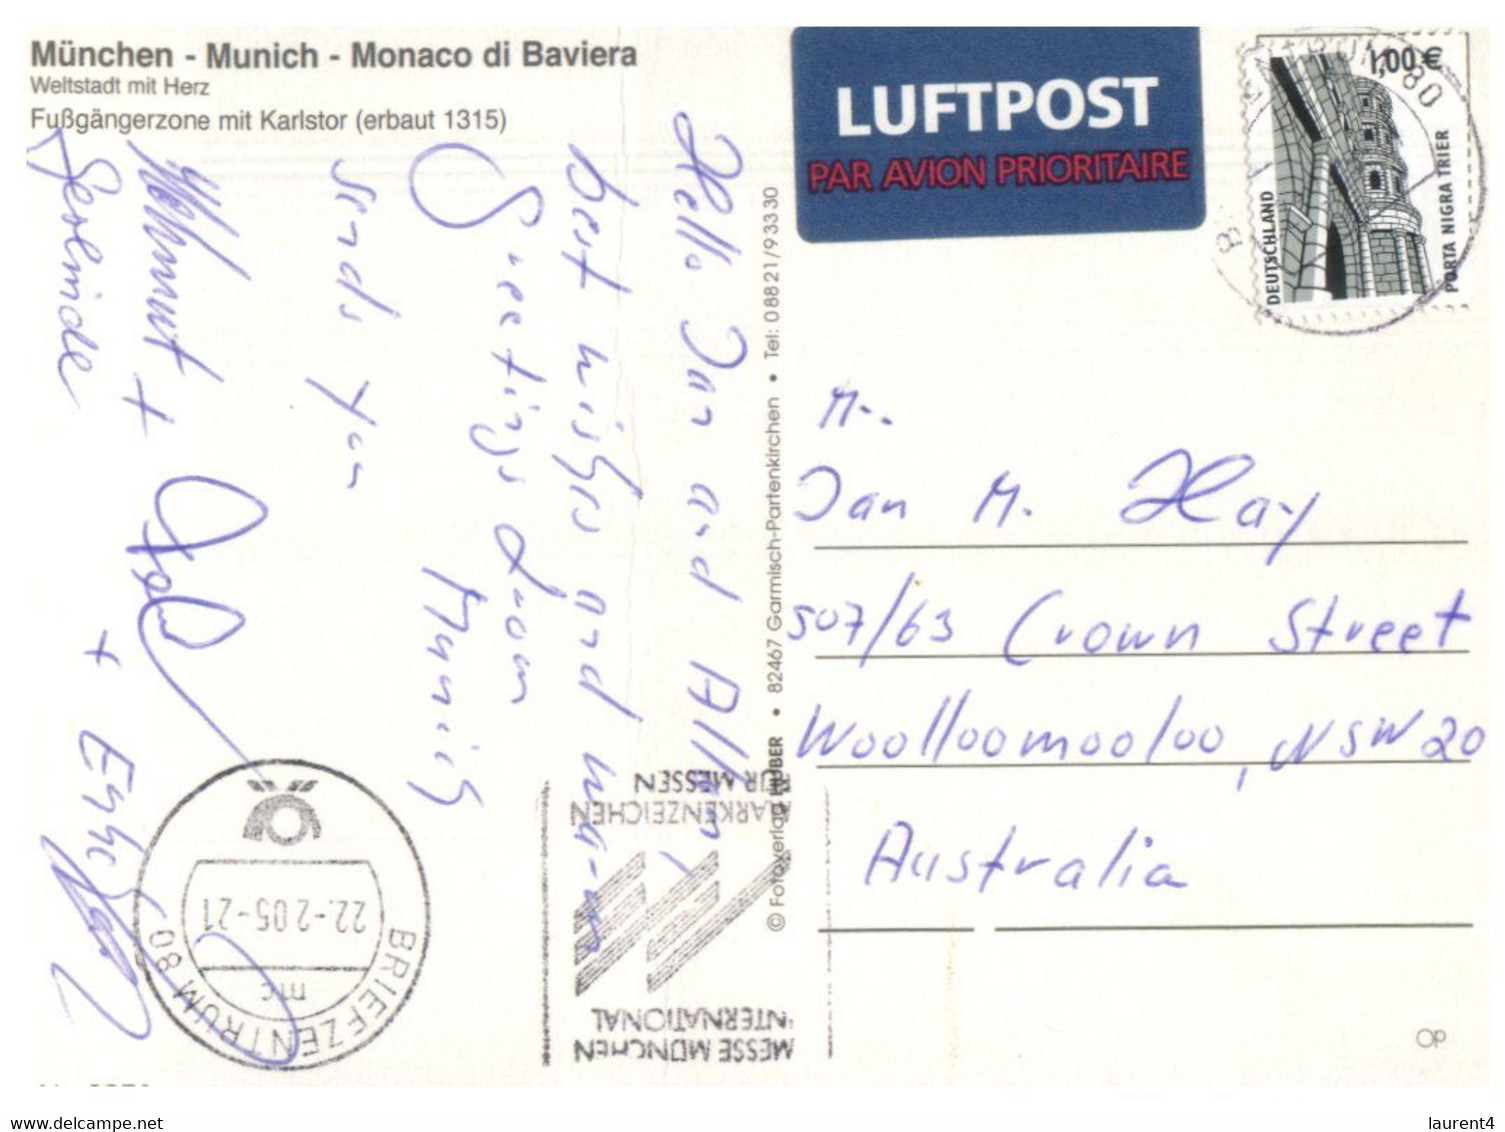 München - Munich - Monaco di Baviera
Weltstadt mit Herz
Fußgängerzone mit Karlstor (erbaut 1315)
LUFTPOST
PAR AVION PRIORITAIRE
1,00 €
DEUTSCHLAND
PORTA NIGRA TRIER
80
Hello Jan and Allen,
best wishes and warm
Greetings from
Munich
sends you
Helmut +
+
Gerlinde
© Fotoverlag HUBER • 82467 Garmisch-Partenkirchen • Tel: 08821/93330
Mr.
Jan M. Hay
507/63 Crown Street
Woolloomooloo, NSW 20
Australia
BRIEFZENTRUM 80
mc
22.-2.05-21
MESSE MÜNCHEN
INTERNATIONAL
MARKENZEICHEN
FÜR MESSEN
OP
www.delcampe.net
laurent4